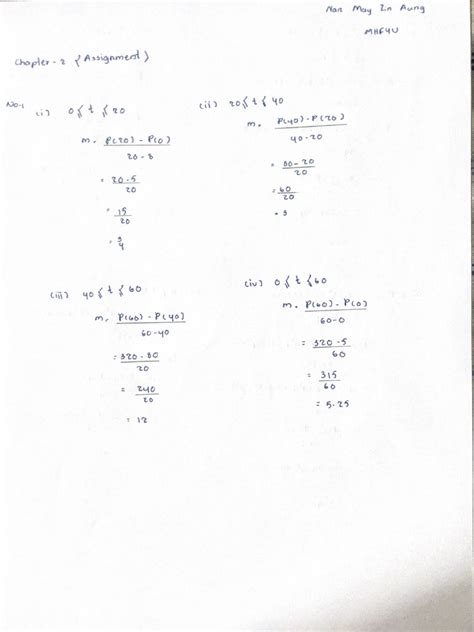 Nan May Zin Aung
MHF4U
Chapter-2 (Assignment)
No.1
(i) 0 ≤ t ≤ 20
m = P(20) - P(0)
20 - 0
= 20 - 5
20
= 15
20
= 3
4
(ii) 20 ≤ t ≤ 40
m = P(40) - P(20)
40 - 20
= 80 - 20
20
= 60
20
= 3
(iii) 40 ≤ t ≤ 60
m = P(60) - P(40)
60 - 40
= 320 - 80
20
= 240
20
= 12
(iv) 0 ≤ t ≤ 60
m = P(60) - P(0)
60 - 0
= 320 - 5
60
= 315
60
= 5.25